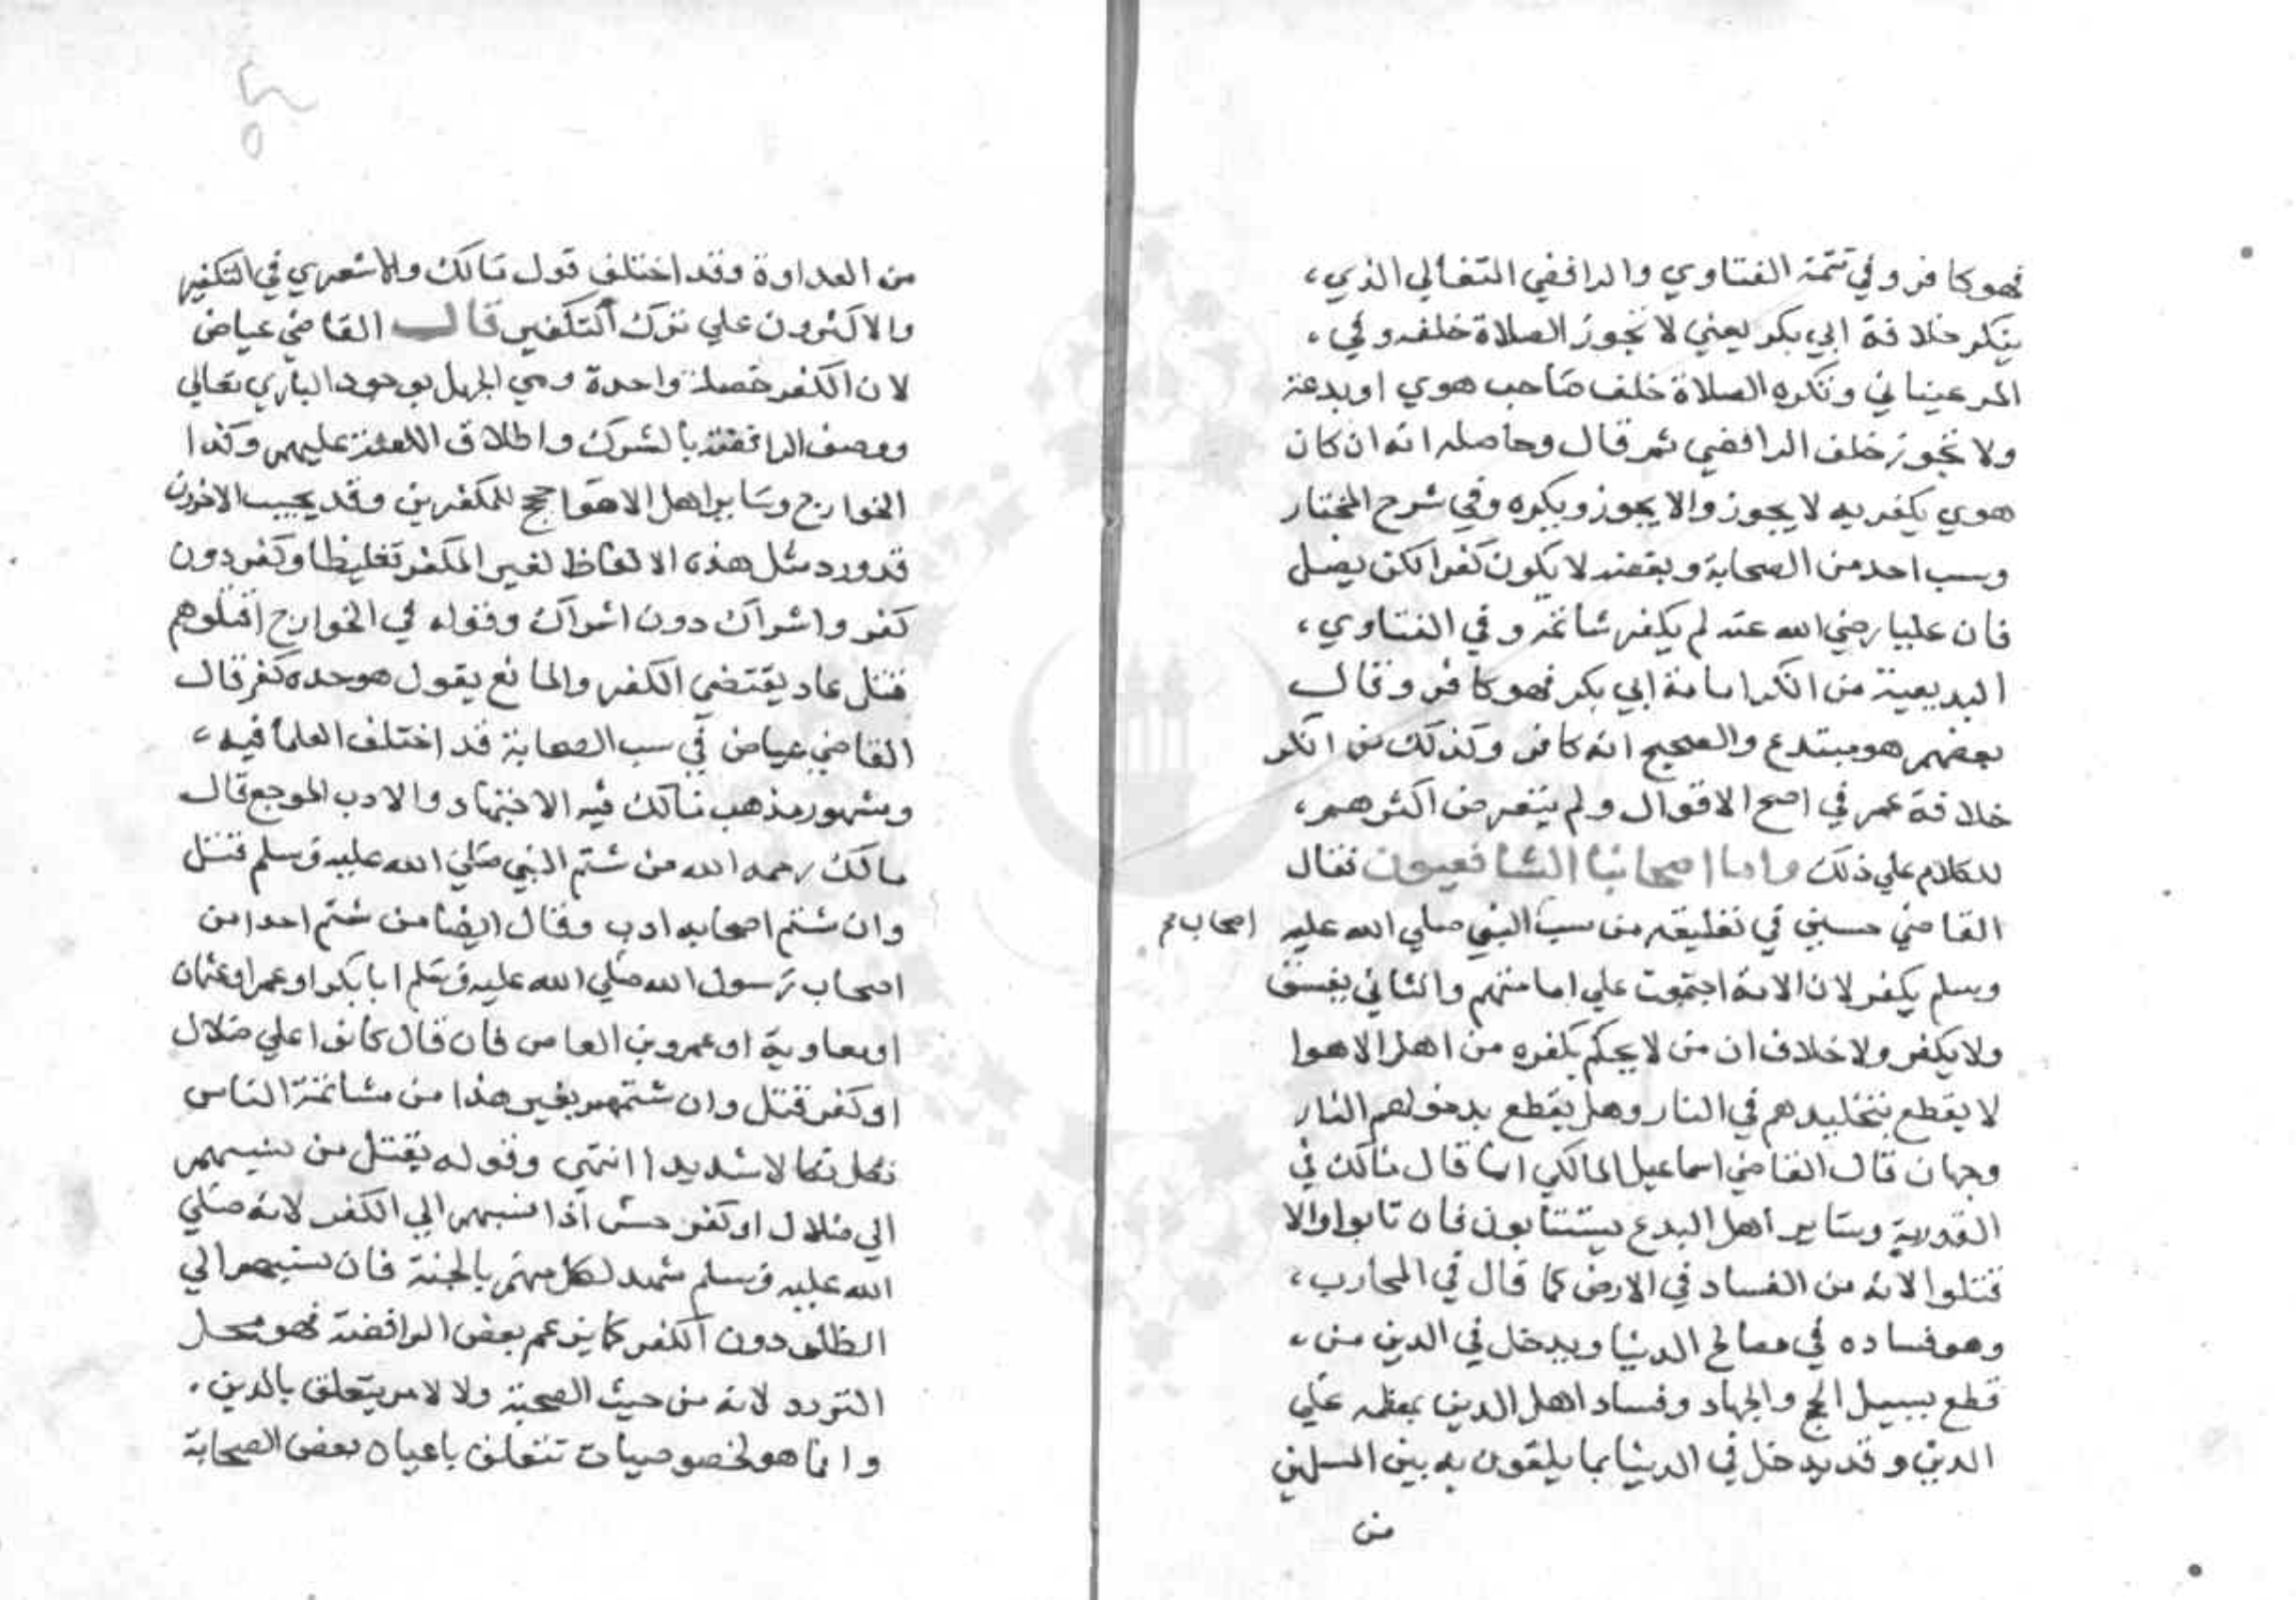 فهو كافر وفي تتمة الفتاوي والرافضي المتغالي الذي،
ينكر خلافة ابي بكر يعني لا تجوز الصلاة خلفه وفي،
المرعيناني وتكره الصلاة خلف صاحب هوي او بدعة
ولا تجوز خلف الرافضي ثم قال وحاصله انه ان كان
هوي يكفر به لا يجوز والا يجوز ويكره وفي شرح المختار
وسب احد من الصحابة وبغضه لا يكون كفرا لكن يضل
فان عليا رضي الله عنه لم يكفر شاتمه وفي الفتاوي،
البديعية من انكر امامة ابي بكر فهو كافر وقال
بعضهم هو مبتدع والصحيح انه كافر وكذلك من انكر
خلافة عمر في اصح الاقوال ولم يتعرض اكثرهم،
للكلام علي ذلك واما اصحابنا الشافعيون فقال
القاضي حسين في تعليقه من سب النبي صلي الله عليه
اصحاب
وسلم يكفر لان الامة اجتمعت علي امامتهم والثاني يفسق
ولا يكفر ولا خلاف ان من لا يحكم بكفره من اهل الاهوا
لا يقطع بتخليدهم في النار وهل يقطع بدخولهم النار
وجهان قال القاضي اسماعيل المالكي انما قال مالك في
القدرية وساير اهل البدع يستتابون فان تابوا والا
قتلوا لانه من الفساد في الارض كما قال في المحارب،
وهو فساده في مصالح الدنيا ويدخل في الدين من،
قطع سبيل الحج والجهاد وفساد اهل الدين بعظمه علي
الدين وقد يدخل في الدنيا بما يلقون به بين المسلمين
من
من العداوة وقد اختلف قول مالك والاشعري في التكفير
والاكثرون علي ترك التكفير قال القاضي عياض
لان الكفر خصلة واحدة وهي الجهل بوجود الباري تعالي
ووصف الرافضة بالشرك واطلاق اللعنة عليهم وكذا
الخوارج وساير اهل الاهوا حجج للمكفرين وقد يجيب الاخرون
قد ورد مثل هذه الالفاظ لغير المكفر تغليظا وكفر دون
كفر واشراك دون اشراك وقوله في الخوارج اقتلوهم
قتل عاد يقتضي الكفر والمانع يقول هو حده كفر قال
القاضي عياض في سب الصحابة قد اختلف العلما فيه،
ومشهور مذهب مالك فيه الاجتهاد والادب الموجع قال
مالك رحمه الله من شتم النبي صلي الله عليه وسلم قتل
وان شتم اصحابه ادب وقال ايضا من شتم احدا من
اصحاب رسول الله صلي الله عليه وسلم ابا بكر او عمر او عثمان
او معاوية او عمرو بن العاص فان قال كانوا علي ضلال
او كفر قتل وان شتمهم بغير هذا من مشاتمة الناس
نكل نكالا شديدا انتهي وقوله يقتل من نسبهم
الي ضلال او كفر حسن اذا نسبهم الي الكفر لانه صلي
الله عليه وسلم شهد لكل منهم بالجنة فان نسبهم الي
الظلم دون الكفر كما يزعم بعض الرافضة فهو محل
التردد لانه من حيث الصحبة ولا لامر يتعلق بالدين.
وانما هو لخصوصيات تتعلق باعيان بعض الصحابة